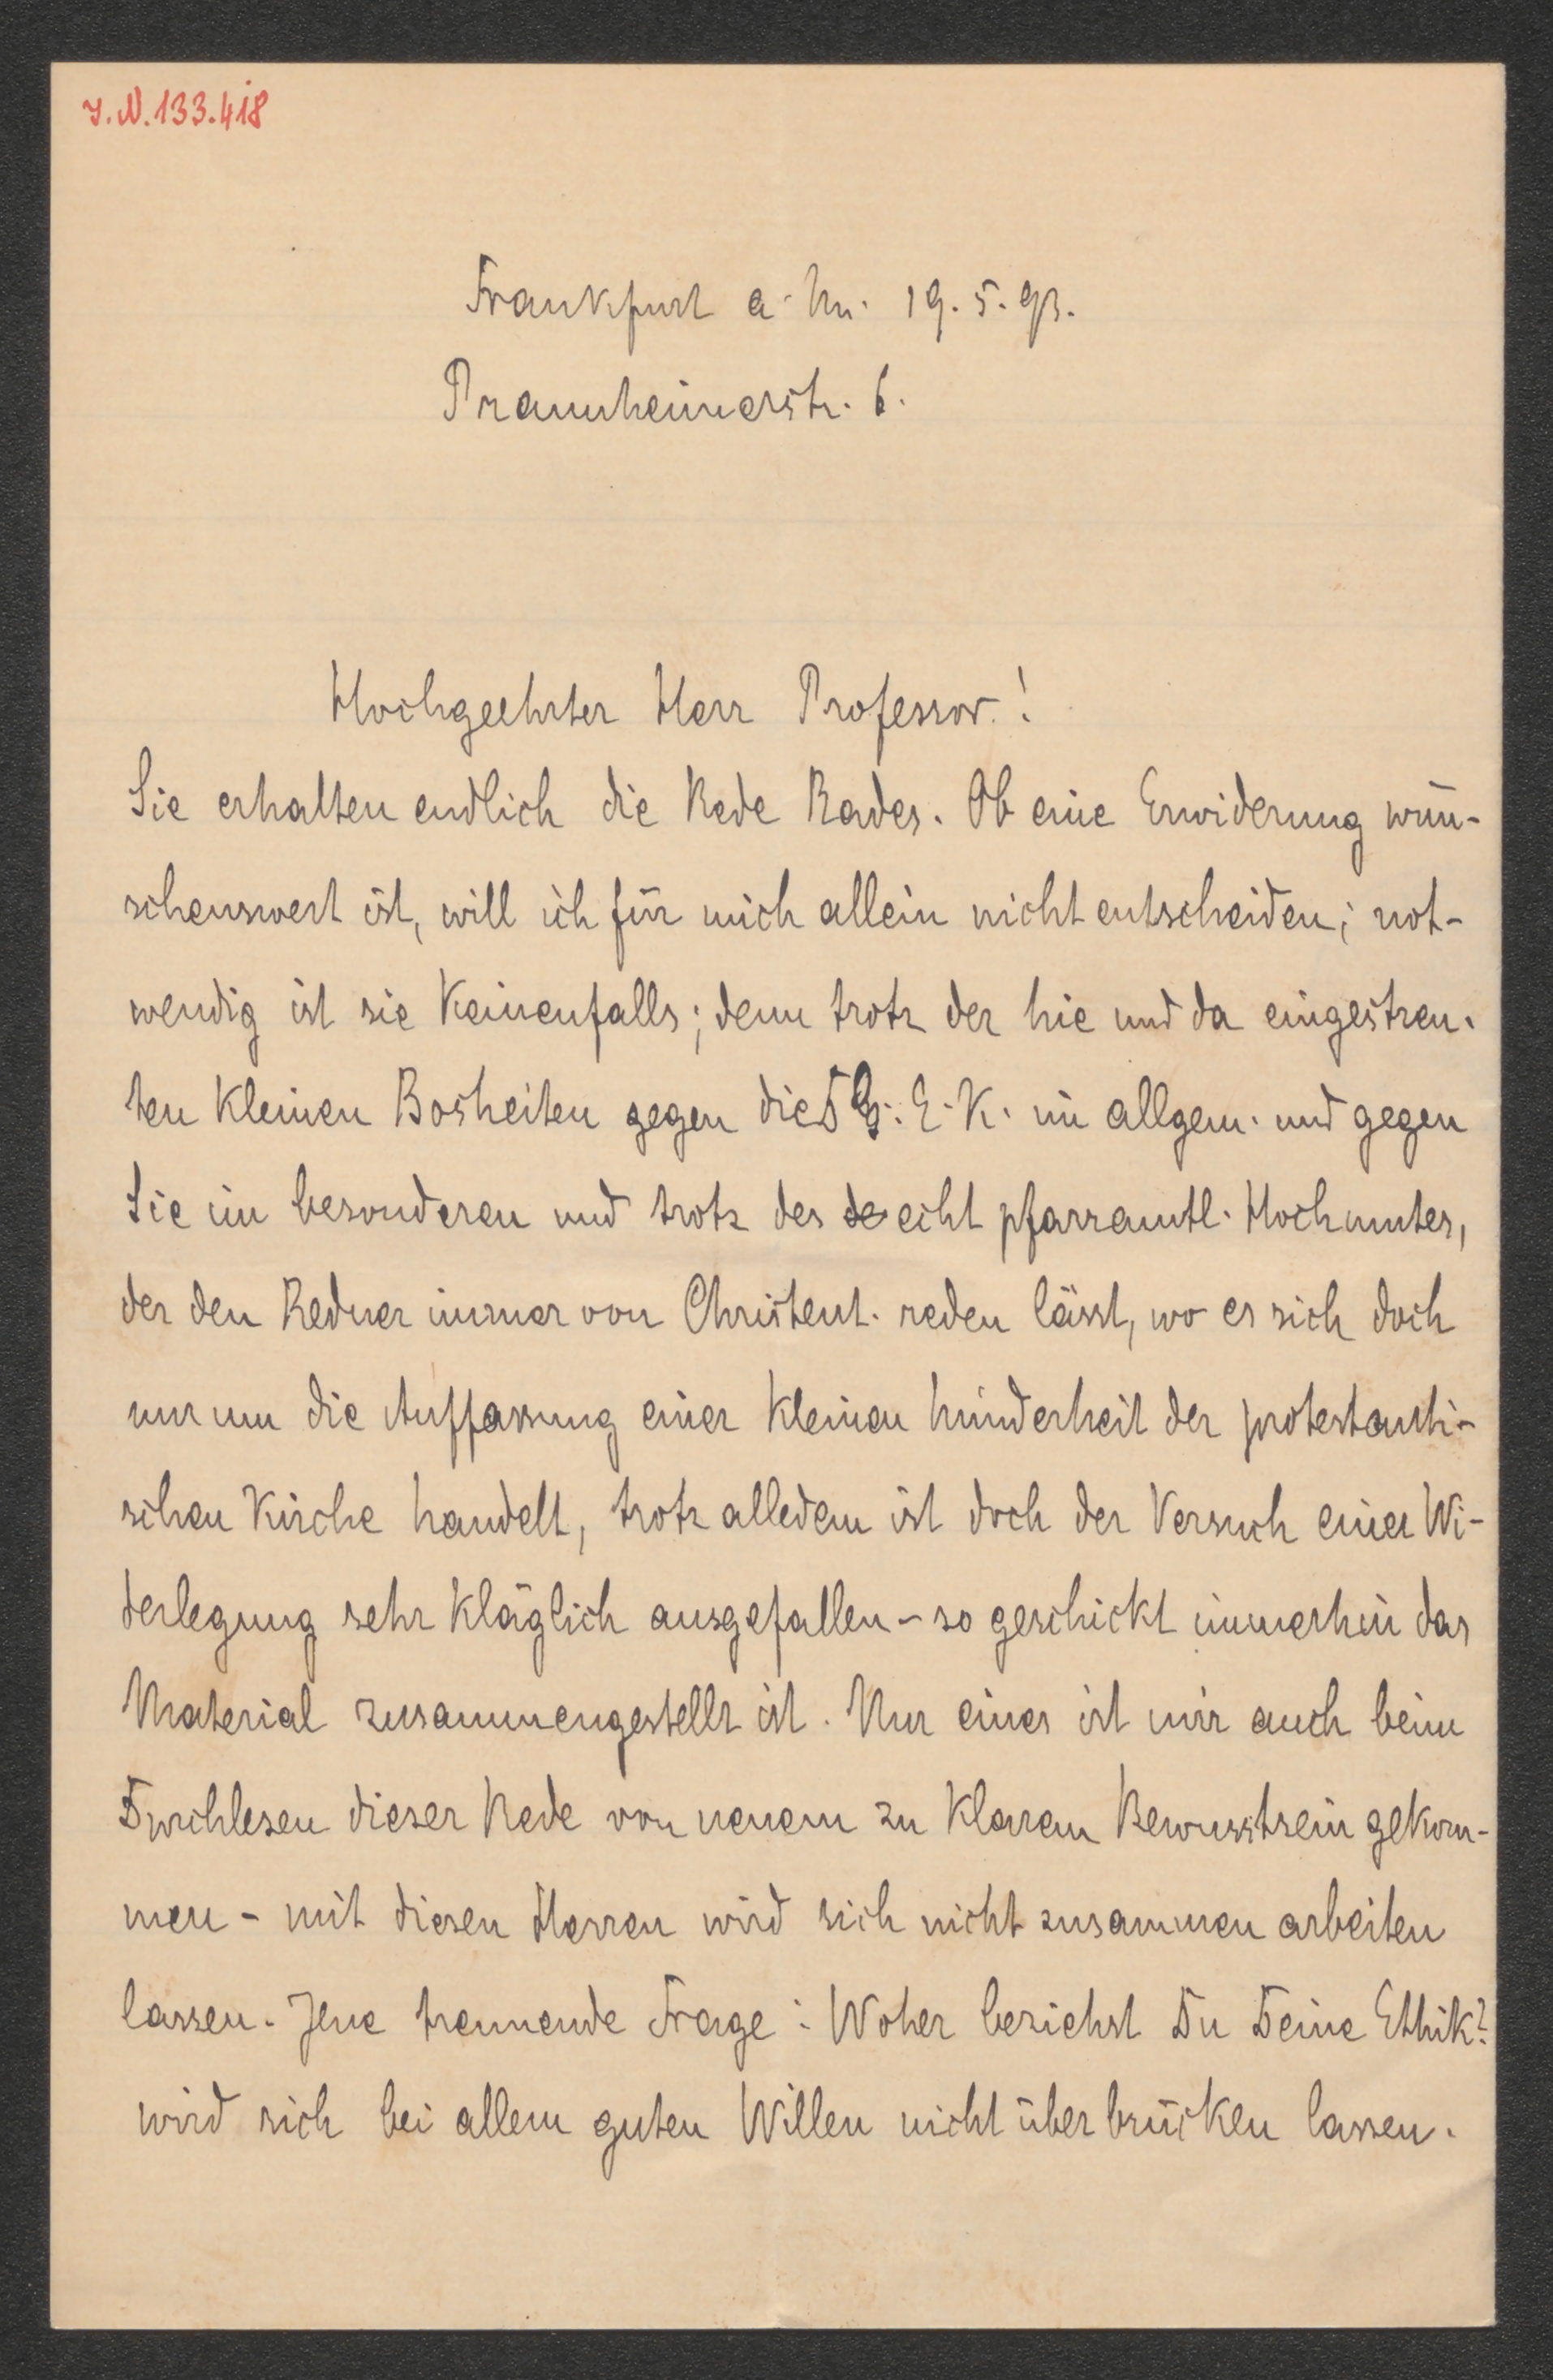 I.N.133.418
Frankfurt a. M. 19.5.93.
Praunheimerstr. 6.
Hochgeehrter Herr Professor!
Sie erhalten endlich die Rede Rades. Ob eine Erwiderung wün-
schenswert ist, will ich für mich allein nicht entscheiden; not-
wendig ist sie keinenfalls; denn trotz der hie und da eingestreu-
ten kleinen Bosheiten gegen die D. G. E. K. im allgem. und gegen
Sie im besonderen und trotz des de echt pfarramtl. Hochmutes,
der den Redner immer von Christent. reden lässt, wo es sich doch
nur um die Auffassung einer kleinen Minderheit der protestanti-
schen Kirche handelt, trotz alledem ist doch der Versuch einer Wi-
derlegung sehr kläglich ausgefallen - so geschickt immerhin das
Material zusammengestellt ist. Nur eines ist mir auch beim
Durchlesen dieser Rede von neuem zu klarem Bewusstsein gekom-
men - mit diesen Herren wird sich nicht zusammen arbeiten
lassen. Jene trennende Frage: Woher beziehst Du Deine Ethik?
wird sich bei allem guten Willen nicht überbrücken lassen.